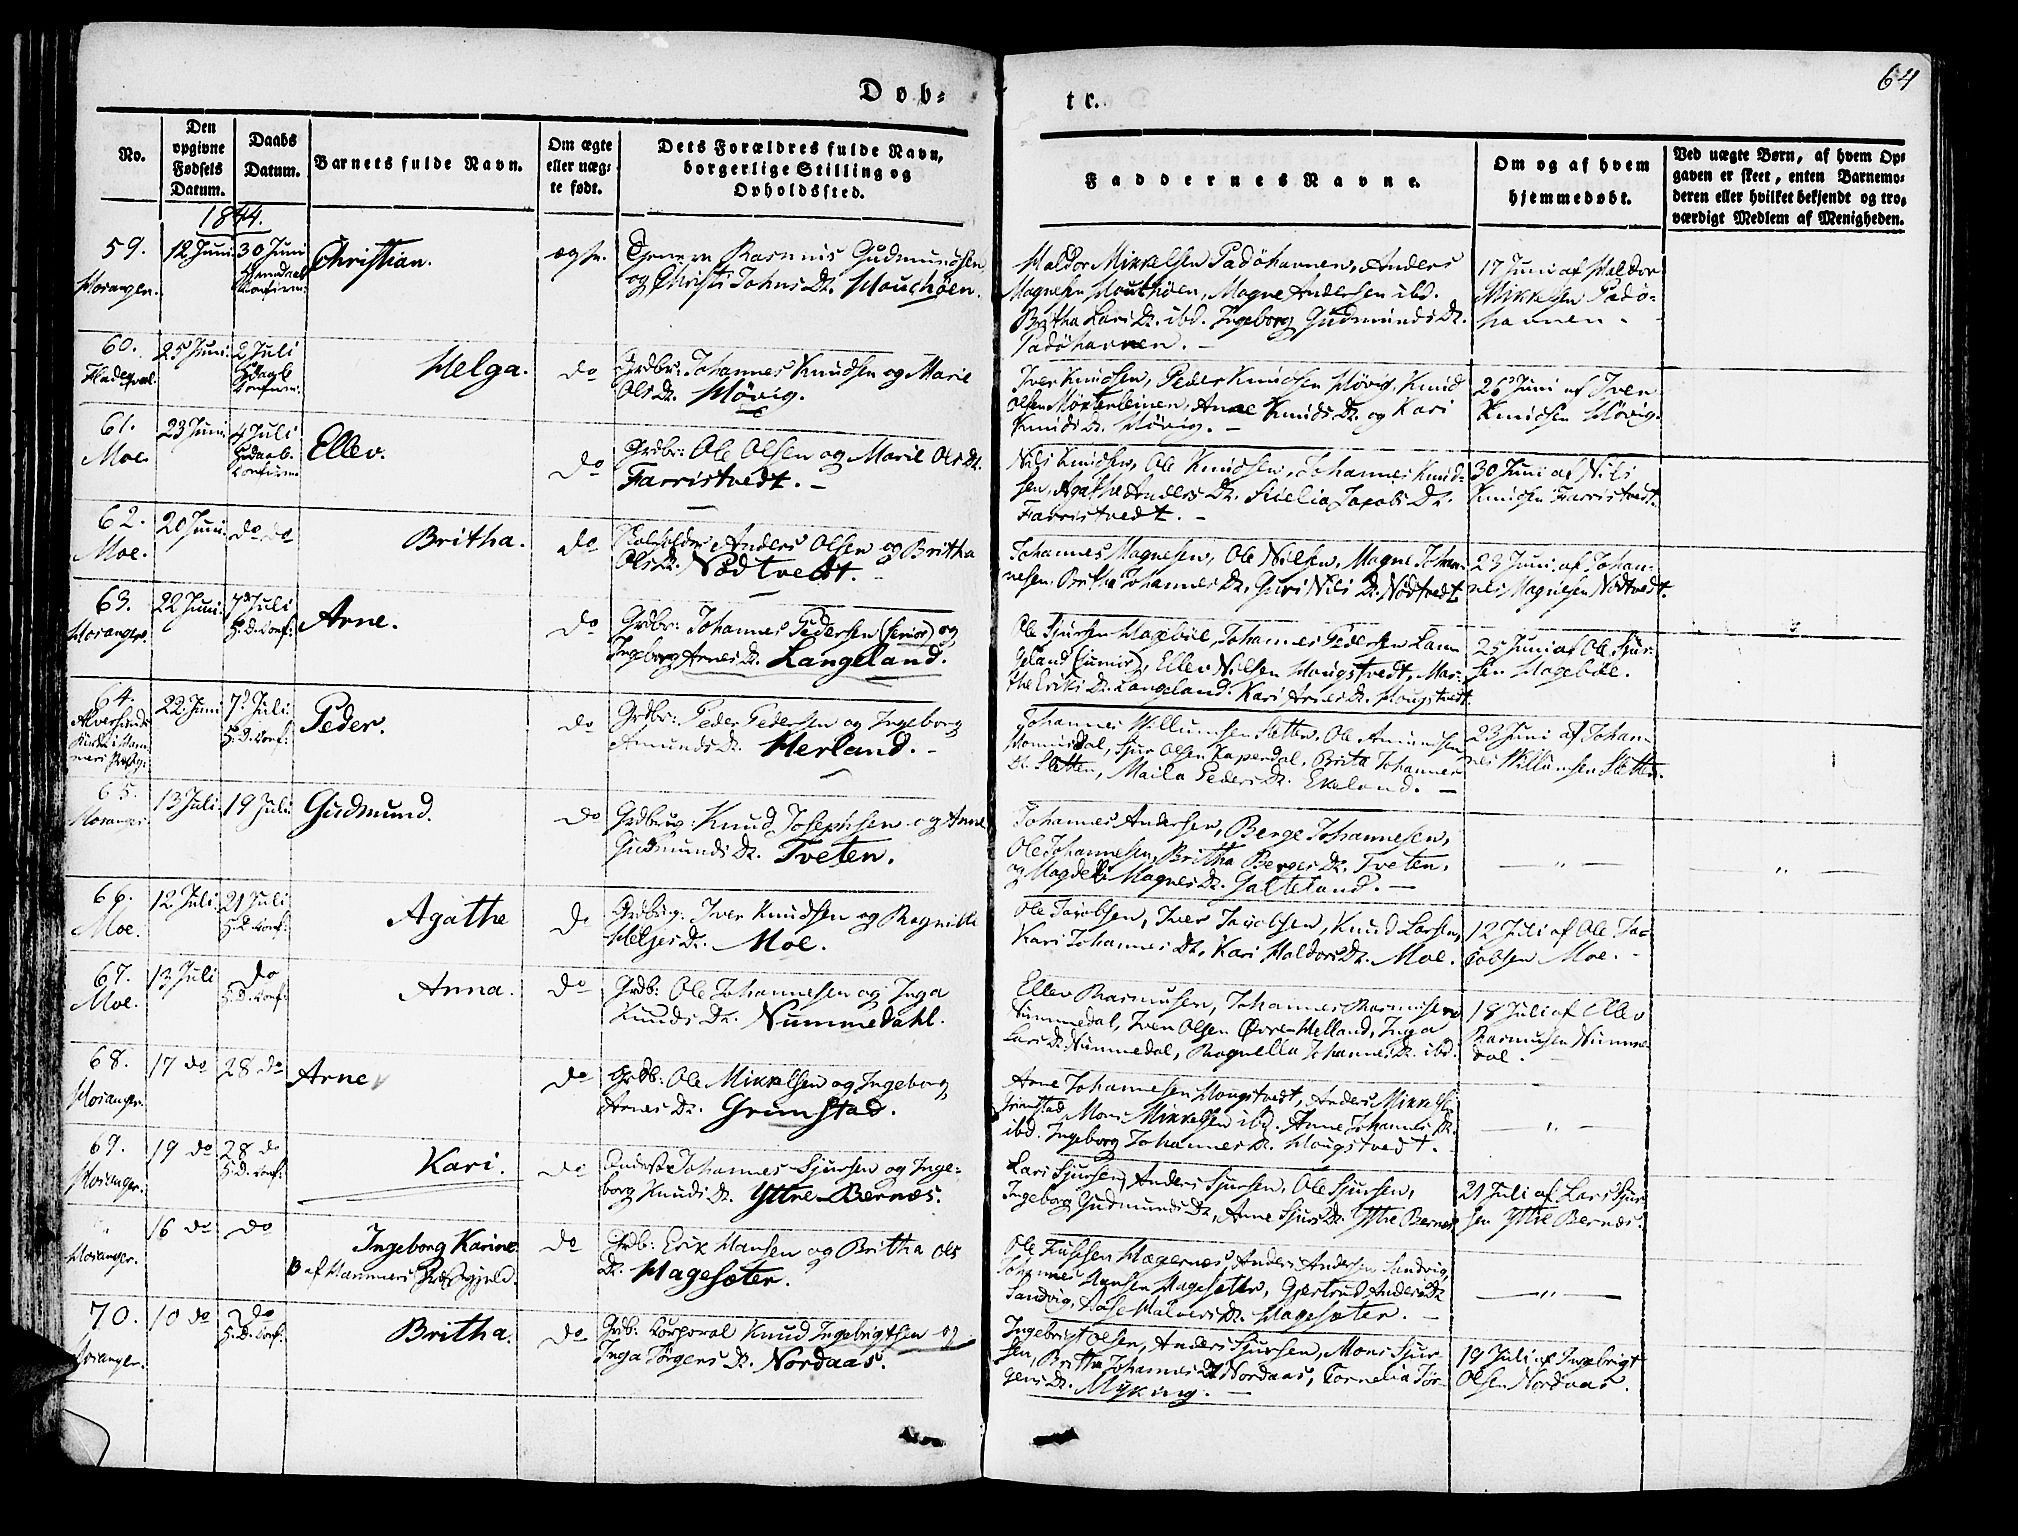 64
Døb-
te.
No.
Den
opgivne
Fødsels
Datum.
Daabs
Datum.
Barnets fulde Navn.
Om ægte
eller uæg-
te født.
Dets Forældres fulde Navn,
borgerlige Stilling og
Opholdssted.
Faddernes Navne.
Om og af hvem
hjemmedøbt.
Ved uægte Børn, af hvem Op-
gaven er skeet, enten Barnemo-
deren eller hvilket bekjendt og tro-
værdigt Medlem af Menigheden.
1844.
59.
Hosanger.
12 Juni
30 Juni
Christian.
ægte.
Rasmus Gudmundsen
og Christi Johns Dr.
Haldor Mikkelsen Padøhavnen, Anders
Magnesen, Magne Andersen ibd.
Britha Lars Dr. ibd. Ingeborg Gudmunds Dr.
Padøhavnen. -
17 Juni af Haldor
Mikkelsen Padø-
havnen -
60.
25 Juni
2 Juli
Helga.
do
Grdbr: Johannes Knudsen og Marie
Ols Dr. Høvig.
Iver Knudsen, Peder Knudsen Høvig, Knud
Olsen, Anne Knuds Dr. og Kari
Knuds Dr. Høvig. -
26 Juni af Iver
Knudsen Høvig.
61.
Moe.
23 Juni
4 Juli
Ellev.
do
Grdbr: Ole Olsen og Marie Ols Dr.
Farristvedt. -
Nils Knudsen, Ole Knudsen, Johannes Knud-
sen, Agathe Anders Dr. Jacobs Dr.
Farristvedt. -
30 Juni af Nils
Knudsen Farristvedt.
62.
Moe.
20 Juni
do do
Britha.
do
Anders Olsen og Britha
Ols Dr. Nødtvedt.
Johannes Magnesen, Ole Nilsen, Magne Johan-
nesen, Britha Johannes Dr, Guri Nils Dr. Nødtvedt
23 Juni af Johan-
nes Magnesen Nødtvedt.
63.
Hosanger.
22 Juni
7 Juli
H. D. Conf:
Arne.
do
Grdbr: Johannes Pedersen (senior) og
Ingeborg Arnes Dr. Langeland.
Ole Sjursen Hagebøe, Johannes Pedersen Lan-
geland (junior), Ellev Nilsen Hougstvedt, Mar-
the Eriks Dr. Langeland. Kari Arnes Dr. Hougstvedt.
25 Juni af Ole Sjur-
sen Hagebøe.
64.
22 Juni
7 Juli
H. D. Conf:
Peder.
do
Grdbr: Peder Pedersen og Ingeborg
Amunds Dr. Herland. -
Johannes Willumsen Sletten, Ole Amundsen
Sjur Olsen, Brita Johannes
Dr. Sletten, Maila Peders Dr. Ekeland. -
23 Juni af Johan-
nes Willumsen Sletten.
65.
Hosanger
13 Juli
19 Juli
Gudmund.
do
Knud Josephsen og Anne
Gudmunds Dr. Tveten.
Johannes Andersen, Berge Johannesen,
Ole Johannesen, Britha Berges Dr. Tveten,
og Magdeli Magnes Dr. Galteland. -
— „ —
— „ —
66.
Moe.
12 Juli
21 Juli
H. D. Conf:
Agathe
do
Iver Knudsen og Ragnilde
Helges Dr. Moe.
Ole Jacobsen, Iver Jacobsen, Knud Larsen,
Kari Johannes Dr., Kari Haldors Dr. Moe.
12 Juli af Ole Jac-
cobsen Moe. -
67.
Moe.
13 Juli
do
H. D. Conf:
Anna.
do
Grdb: Ole Johannesen og Inga
Knuds Dr. Nummedahl.
Ellev Rasmusen, Johannes Rasmusen
Nummedal, Iver Olsen Øvre-Helland, Inga
Lars Dr. Nummedal, Ragnella Johannes Dr. ibd.
18 Juli af Ellev
Rasmusen Numme-
dal.
68.
Hosanger.
17 do
28 do
Arne
do
Grdb: Ole Mikkelsen og Ingeborg
Arnes Dr. Grimstad.
Arne Johannesen Hougstvedt, Anders Mikkelsen
Grimstad, Mons Mikkelsen ibd. Anne Johannes Dr.
ibd. Ingeborg Johannes Dr. Hougstvedt. -
— „ —
69.
Hosanger.
19 do
28 do
H. D. Conf:
Kari.
do
Johannes Sjursen og Inge-
borg Knuds Dr. Yttre-Bernæs.
Lars Sjursen, Anders Sjursen, Ole Sjursen,
Ingeborg Gudmunds Dr., Anne Sjurs Dr. Yttre Bernæs
21 Juli af Lars Sjur-
sen Yttre Bernæs.
„
Hosanger.
16 do
do
Ingeborg Karine
af Hammers Præstgjeld.
do
Grdb: Erik Hansen og Britha Ols
Dr. Hagesæter.
Anders Andersen Sandvig,
Johannes Hansen Hagesæter, Gjertrud Anders Dr.
Sandvig, Halvers Dr. Hagesæter. -
— „ —
70.
Hosanger.
10 do
do
H. D. Conf:
Britha.
do
Grdb: Corporal Knud Ingebrigtsen og
Inga Jørgens Dr. Nordaas.
Ingebrigt Olsen, Anders Sjursen, Mons Sjur-
sen, Britha Johannes Dr. Nordaas, Cornelia Jør-
gens Dr. Myking. -
19 Juli af Ingebrigt
Olsen Nordaas.